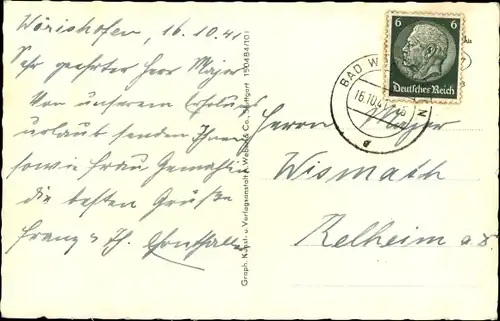 Wörishofen, 16.10.41
Sehr geehrter Herr Major
Von unserem Erholungs
urlaub senden Ihnen
sowie Frau Gemahlin
die besten Grüße
Franz u. Th.
Graph. Kunst- u. Verlagsanstalt A. Weber & Co., Stuttgart 190484/101
6 6
Deutsches Reich
BAD W N
16.10.41
Herrn Major
Wismath
Kelheim a.d.